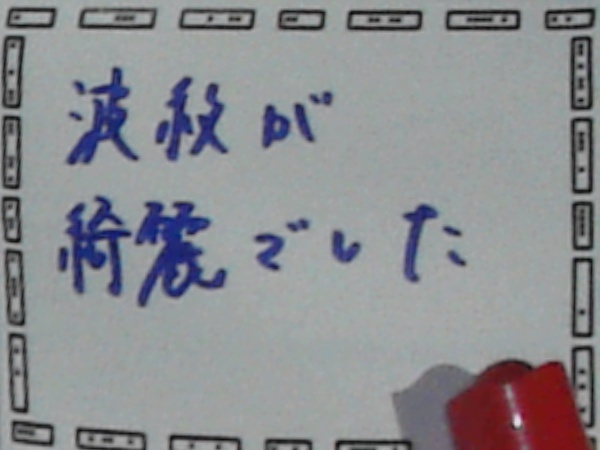 波紋が
綺麗でした